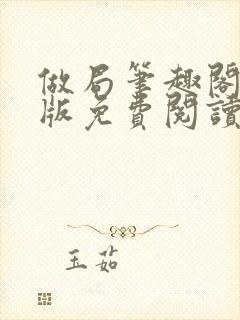 做局筆趣閣
版免費閱讀
玉茹